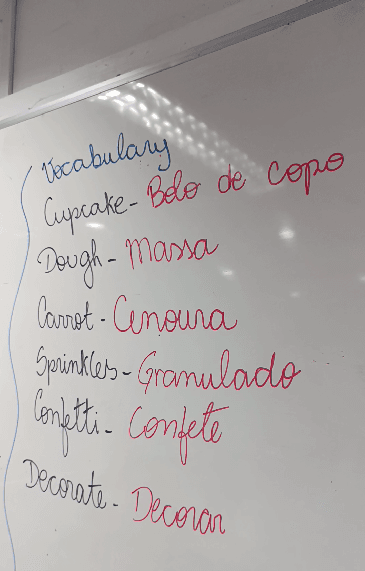 Vocabulary
Cupcake - Bolo de copo
Dough - Massa
Carrot - Cenoura
Sprinkles - Granulado
Confetti - Confete
Decorate - Decorar